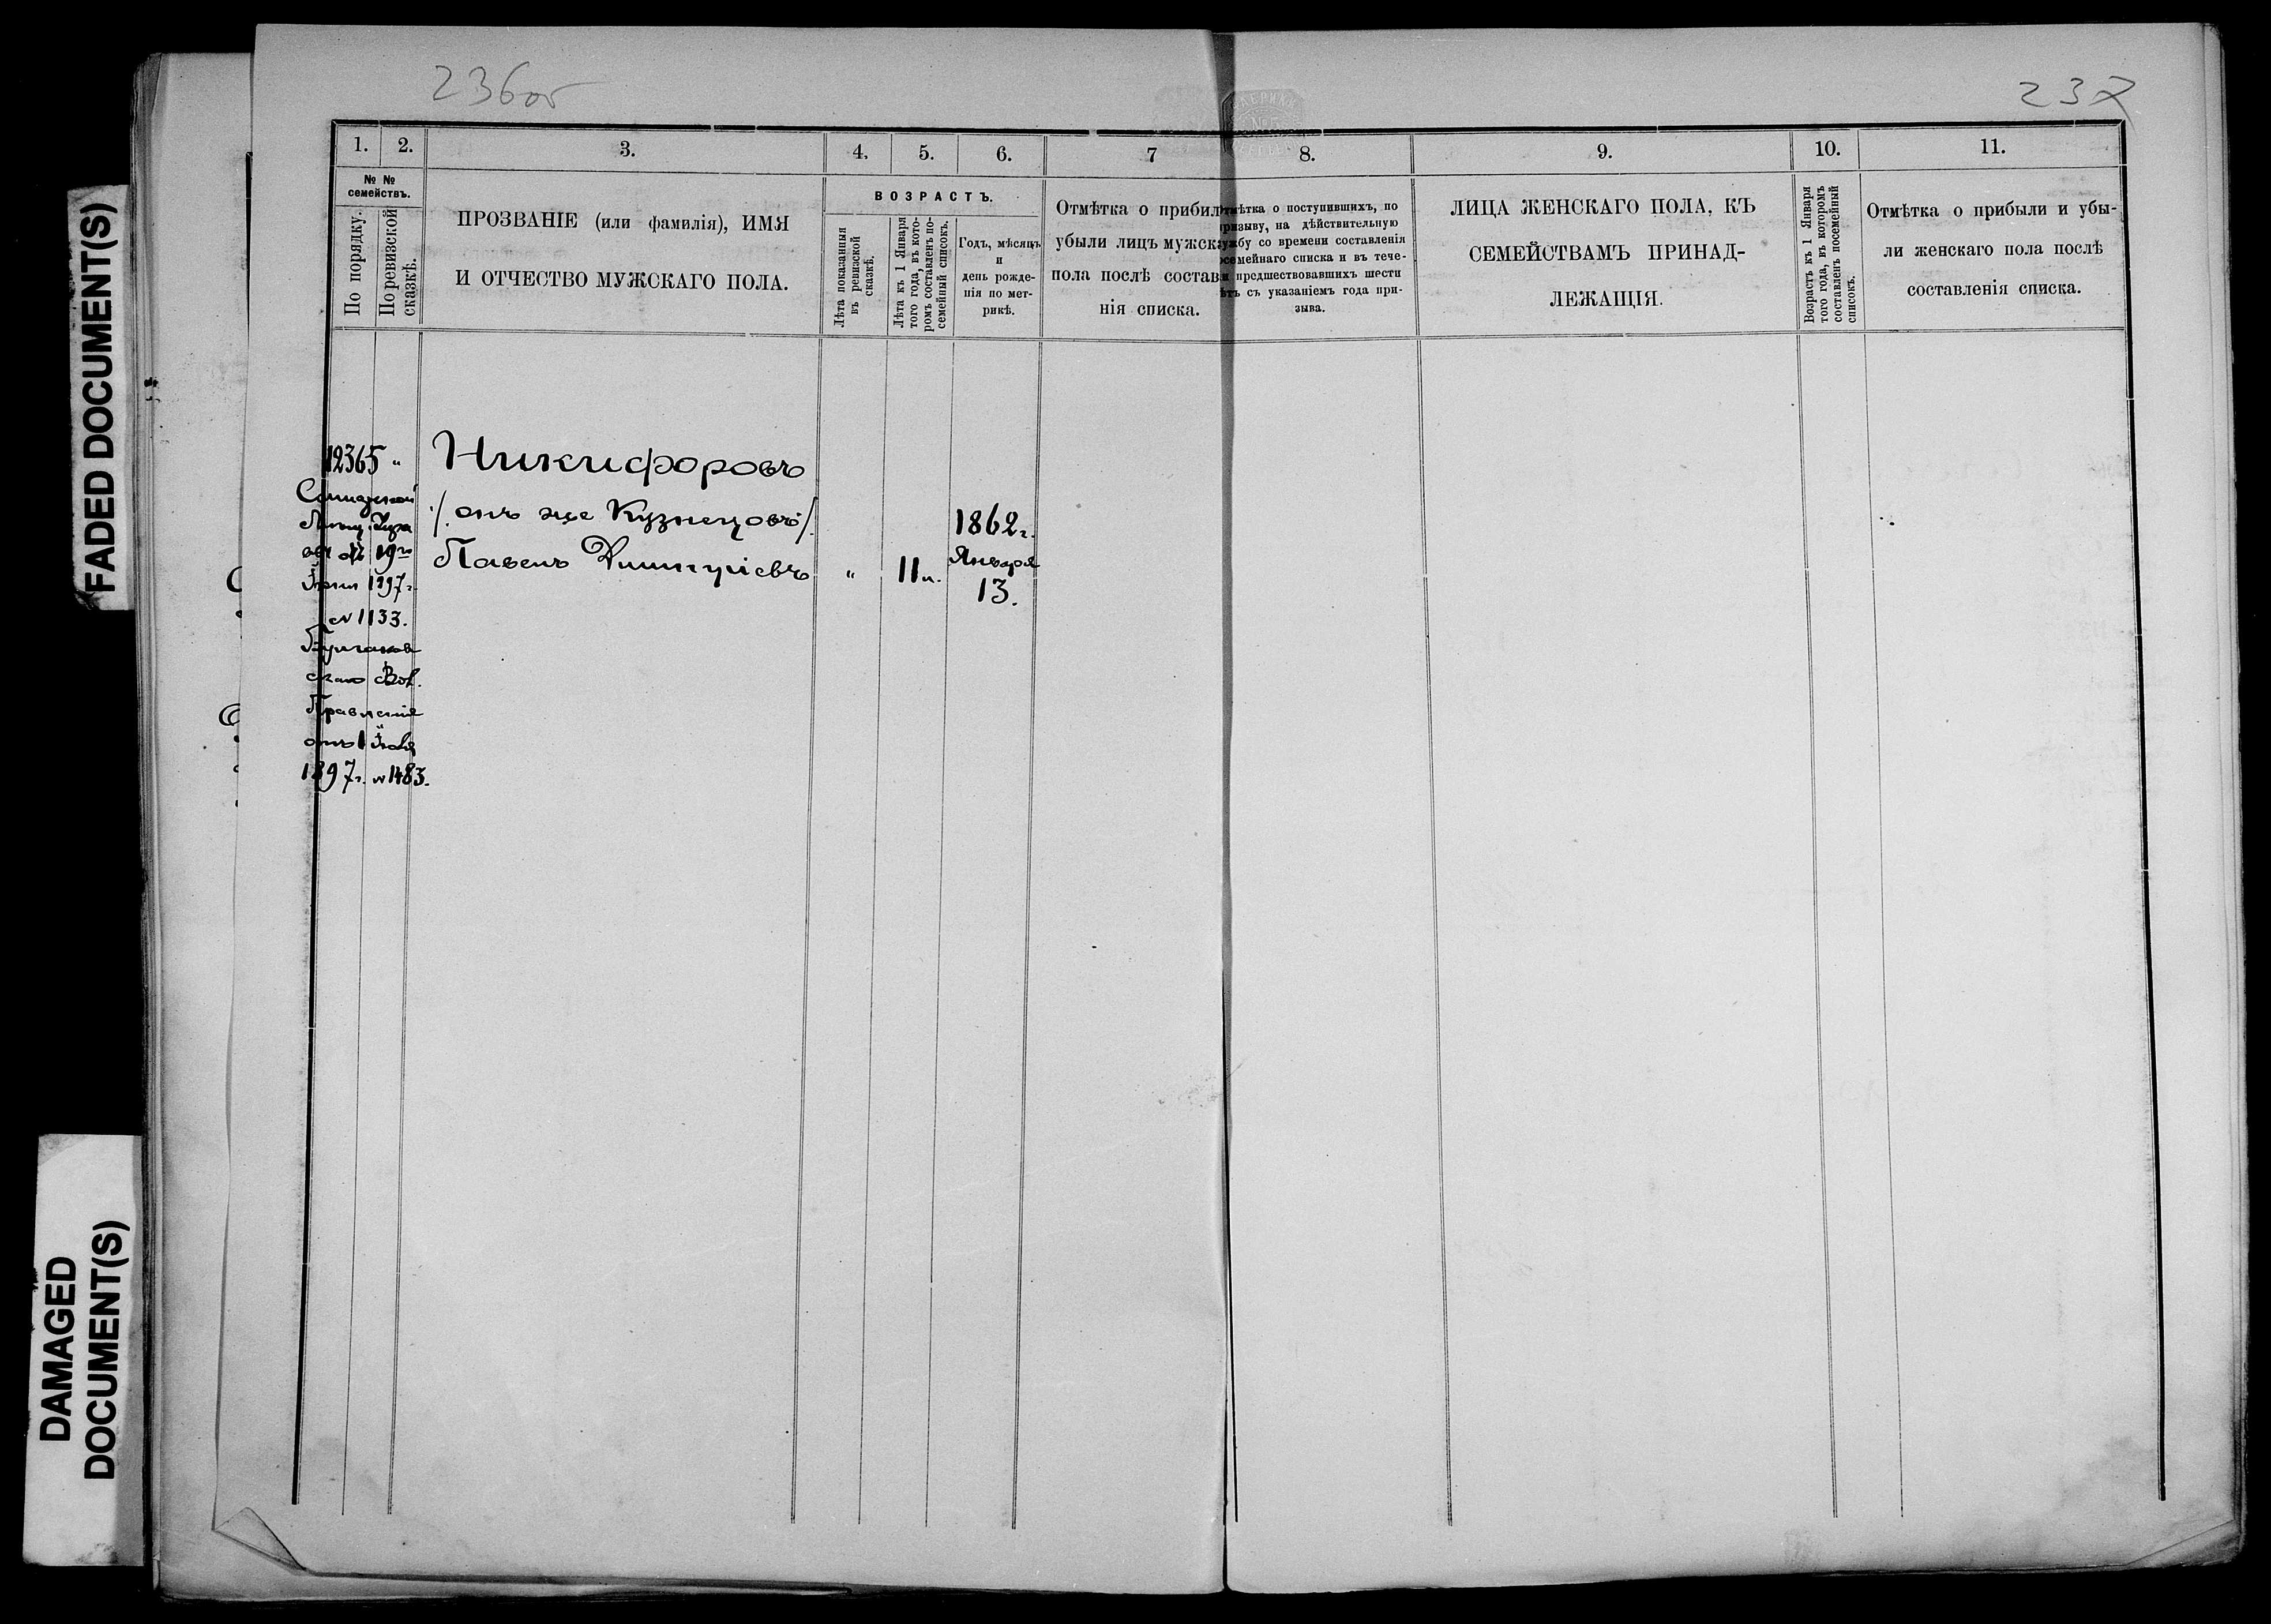 FADED DOCUMENT(S)
DAMAGED
DOCUMENT(S)
236об
237
1.
2.
3.
4.
5.
6.
7
8.
9.
10.
11.
№ №
семействъ.
По порядку.
По ревизской
сказкѣ.
ПРОЗВАНІЕ (или фамилія), ИМЯ
И ОТЧЕСТВО МУЖСКАГО ПОЛА.
ВОЗРАСТЪ.
Лѣта показанныя
въ ревизской
сказкѣ.
Лѣта къ 1 Января
того года, въ кото-
ромъ составленъ по-
семейный списокъ.
Годъ, мѣсяцъ
и
день рожде-
нія по мет-
рикѣ.
Отмѣтка о прибил
убыли лицъ мужск
пола послѣ состав
нія списка.
тмѣтка о поступившихъ, по
ризыву, на дѣйствительную
ужбу со времени составленія
семейнаго списка и въ тече-
и предшествовавшихъ шести
ѣтъ съ указаніемъ года при-
зыва.
ЛИЦА ЖЕНСКАГО ПОЛА, КЪ
СЕМЕЙСТВАМЪ ПРИНАД-
ЛЕЖАЩІЯ.
Возрастъ къ 1 Января
того года, въ которомъ
составленъ посемейный
списокъ.
Отмѣтка о прибыли и убы-
ли женскаго пола послѣ
составленія списка.
12365 "
Никифоровъ
/. онъ же Кузнецовъ /.
Павелъ Дмитріевъ
"
11 м.
1862 г.
Января
13.
отъ 19го
1897 г.
№ 1133.
скаго Вол.
Правленія
отъ 1 Іюля
1897 г. № 1483.